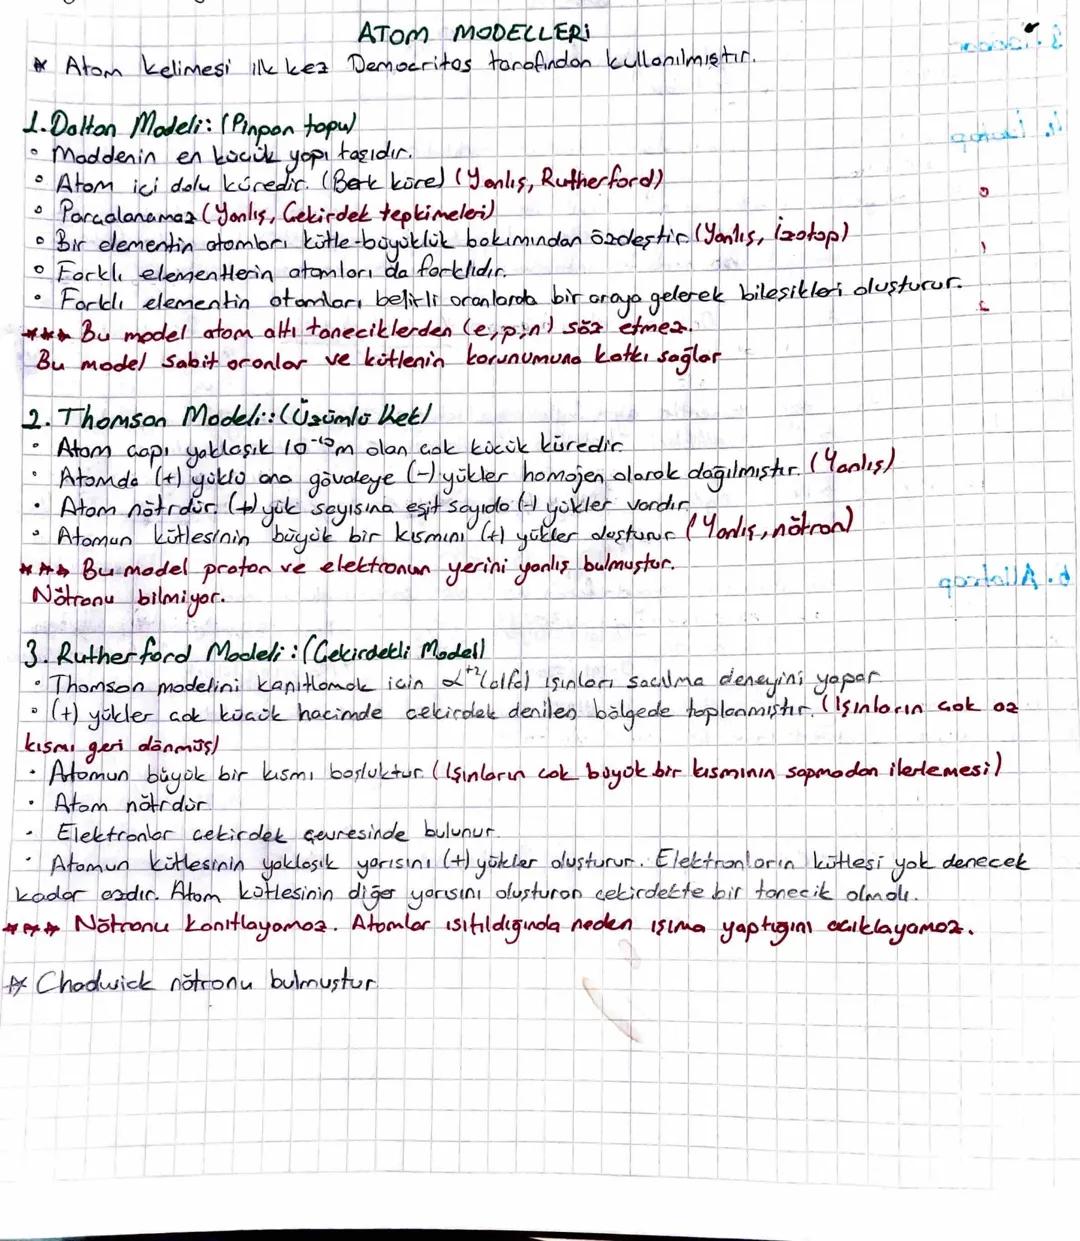 ATOM MODELLERİ
* Atom kelimesi ilk kez Democritos tarafından kullanılmıştır.
1. Dalton Modeli: (Pinpon topu)
• Maddenin en küçük yapı taşıdır.
• Atom içi dolu küredir. (Berk küre) (Yanlış, Rutherford)
• Parçalanamaz (Yanlış, Çekirdek tepkimeleri)
• Bir elementin atomları kütle-büyüklük bakımından özdeştir (Yanlış, İzotop)
• Farklı elementlerin atomları da farklıdır.
• Farklı elementin atomları, belirli oranlarda bir araya gelerek bileşikleri oluşturur.
*** Bu model atom altı taneciklerden (e,p,n) söz etmez.
Bu model sabit oranlar ve kütlenin korunumuna katkı sağlar
2. Thomson Modeli: (Üzümlü kek)
• Atom çapı yaklaşık 10⁻¹⁰m olan çok küçük küredir.
• Atomda (+) yüklü ana gövdeye (-) yükler homojen olarak dağılmıştır. (Yanlış)
• Atom nötrdür. (+) yük sayısına eşit sayıda (-) yükler vardır.
• Atomun kütlesinin büyük bir kısmını (+) yükler oluşturur (Yanlış, nötron)
*** Bu model proton ve elektronun yerini yanlış bulmuştur.
Nötronu bilmiyor.
6. Allotrop
3. Rutherford Modeli: (Çekirdekli Model)
• Thomson modelini kanıtlamak için α⁺²(alfa) ışınları saçılma deneyini yapar
• (+) yükler çok küçük hacimde çekirdek denilen bölgede toplanmıştır. (Işınların çok az
kısmı geri dönmüş)
• Atomun büyük bir kısmı boşluktur (Işınların çok büyük bir kısmının sapmadan ilerlemesi)
• Atom nötrdür.
• Elektronlar çekirdek çevresinde bulunur.
• Atomun kütlesinin yaklaşık yarısını (+) yükler oluşturur. Elektronların kütlesi yok denecek
kadar azdır. Atom kütlesinin diğer yarısını oluşturan çekirdekte bir tanecik olmalı.
*** Nötronu kanıtlayamaz. Atomlar ısıtıldığında neden ışıma yaptığını açıklayamaz.
* Chadwick nötronu bulmuştur.